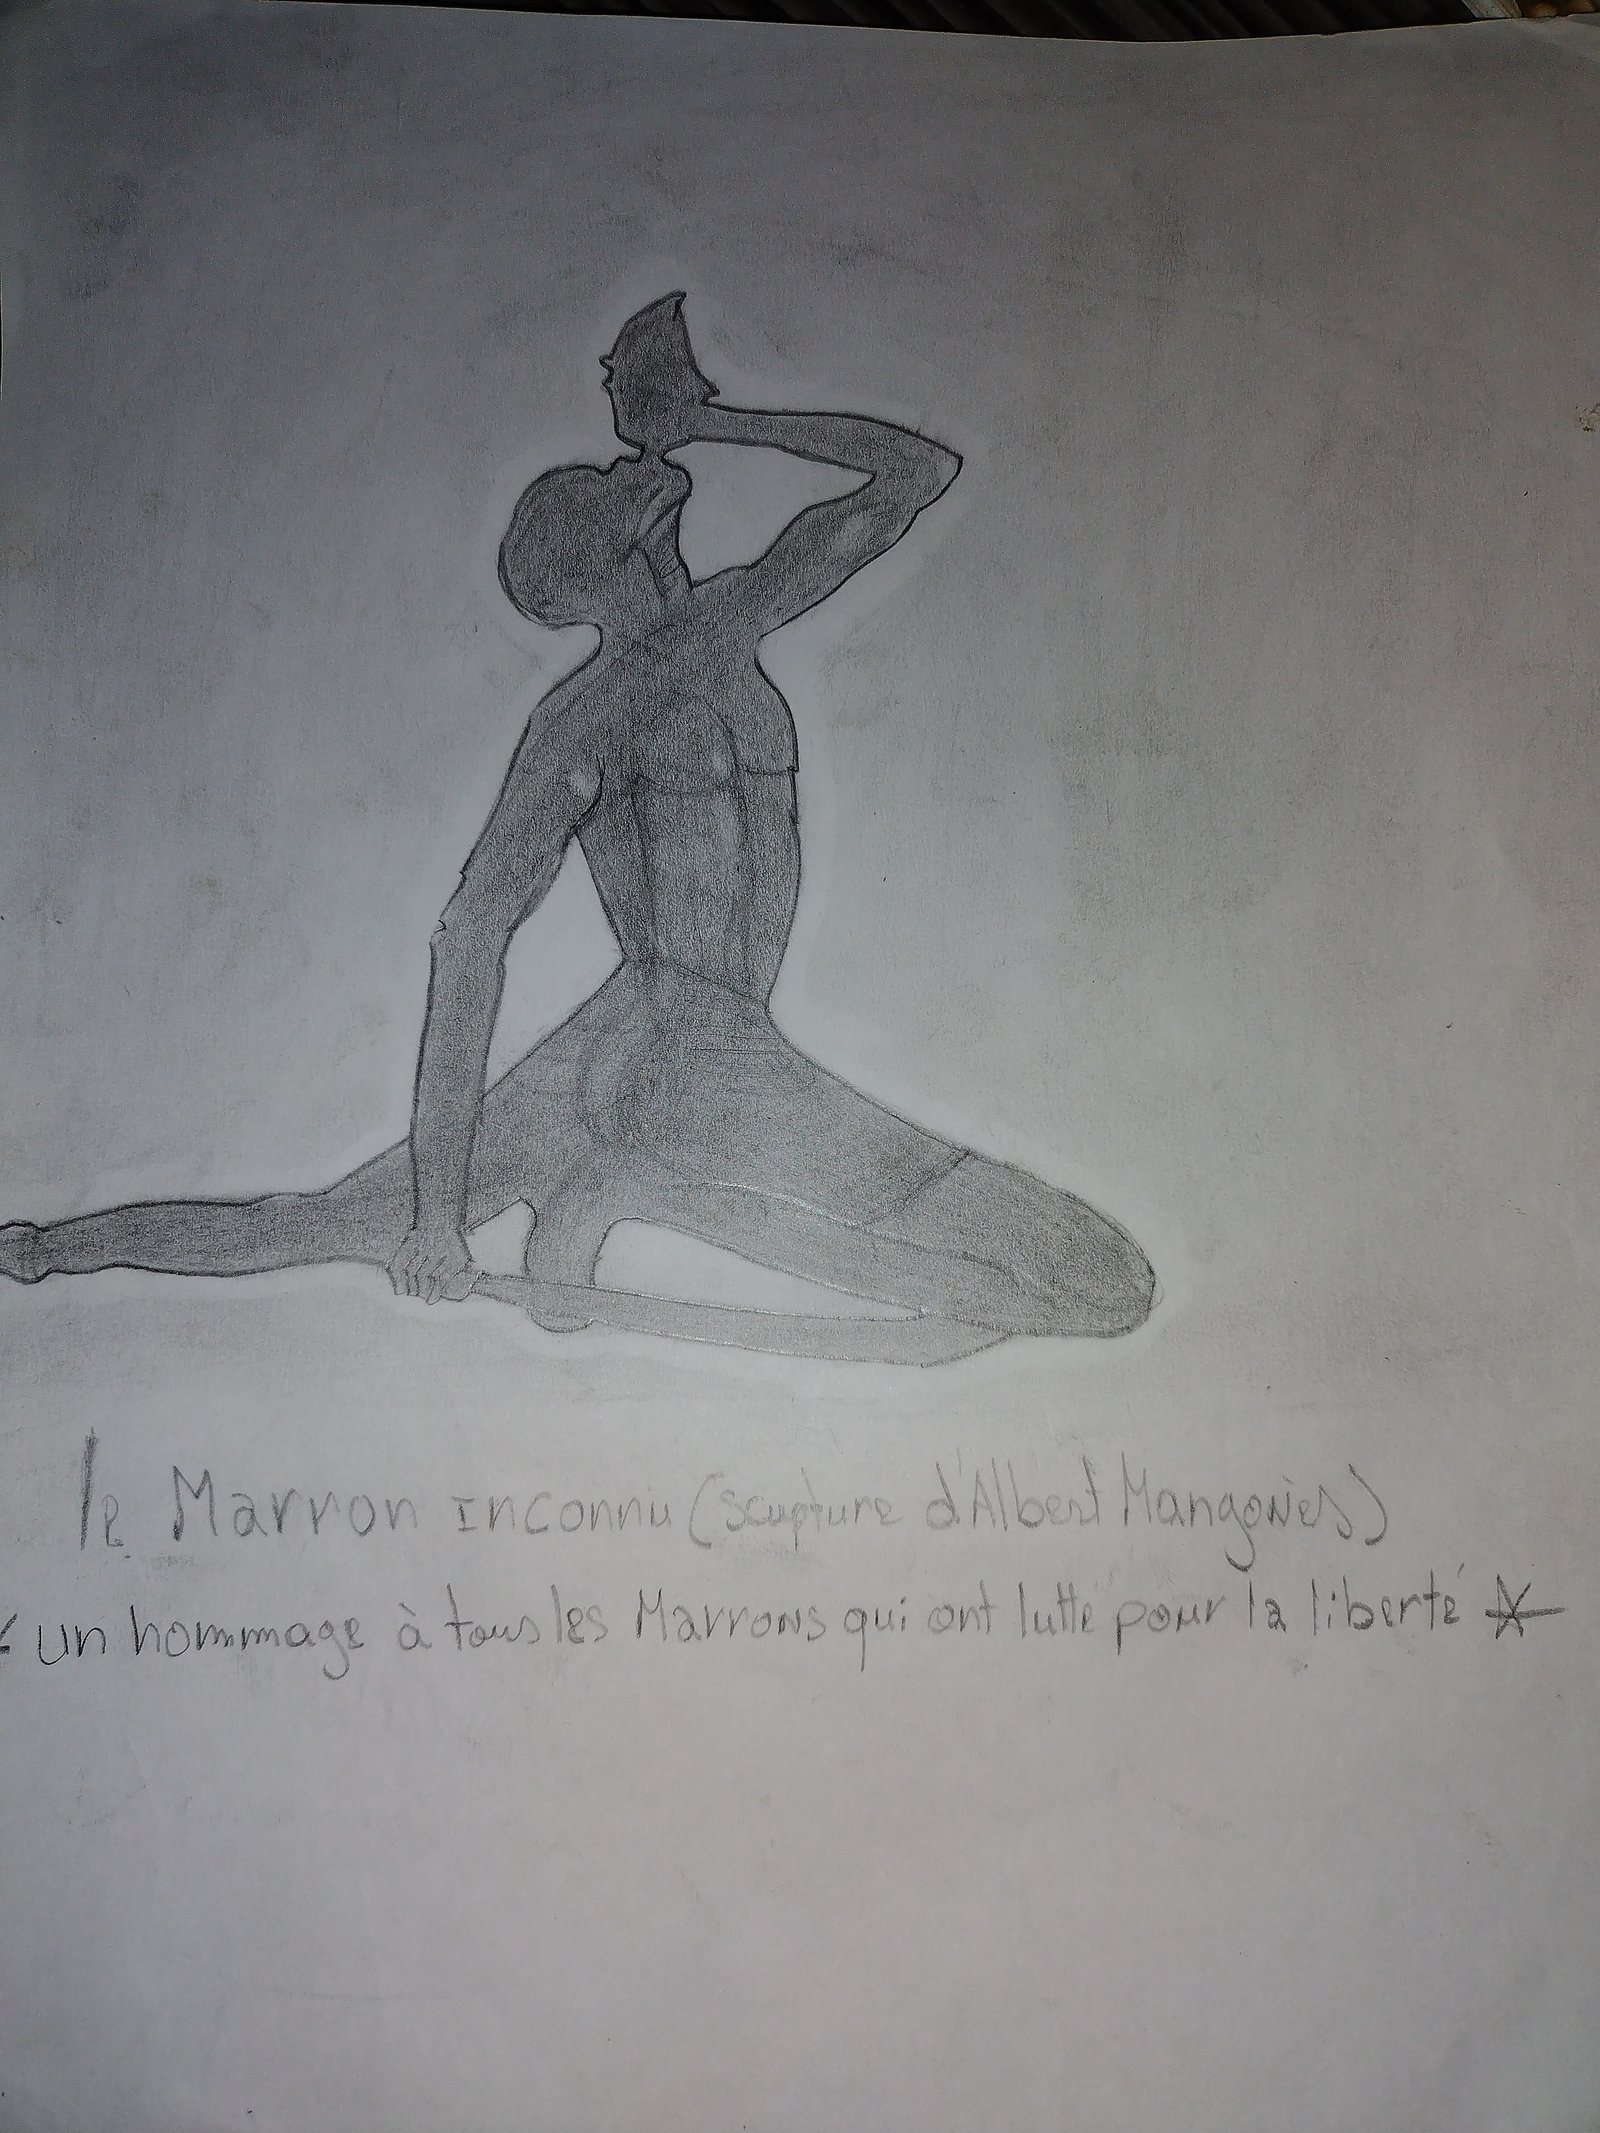 le Marron inconnu (scupture d'Albert Mangonès)
un hommage à tous les Marrons qui ont lutté pour la liberté